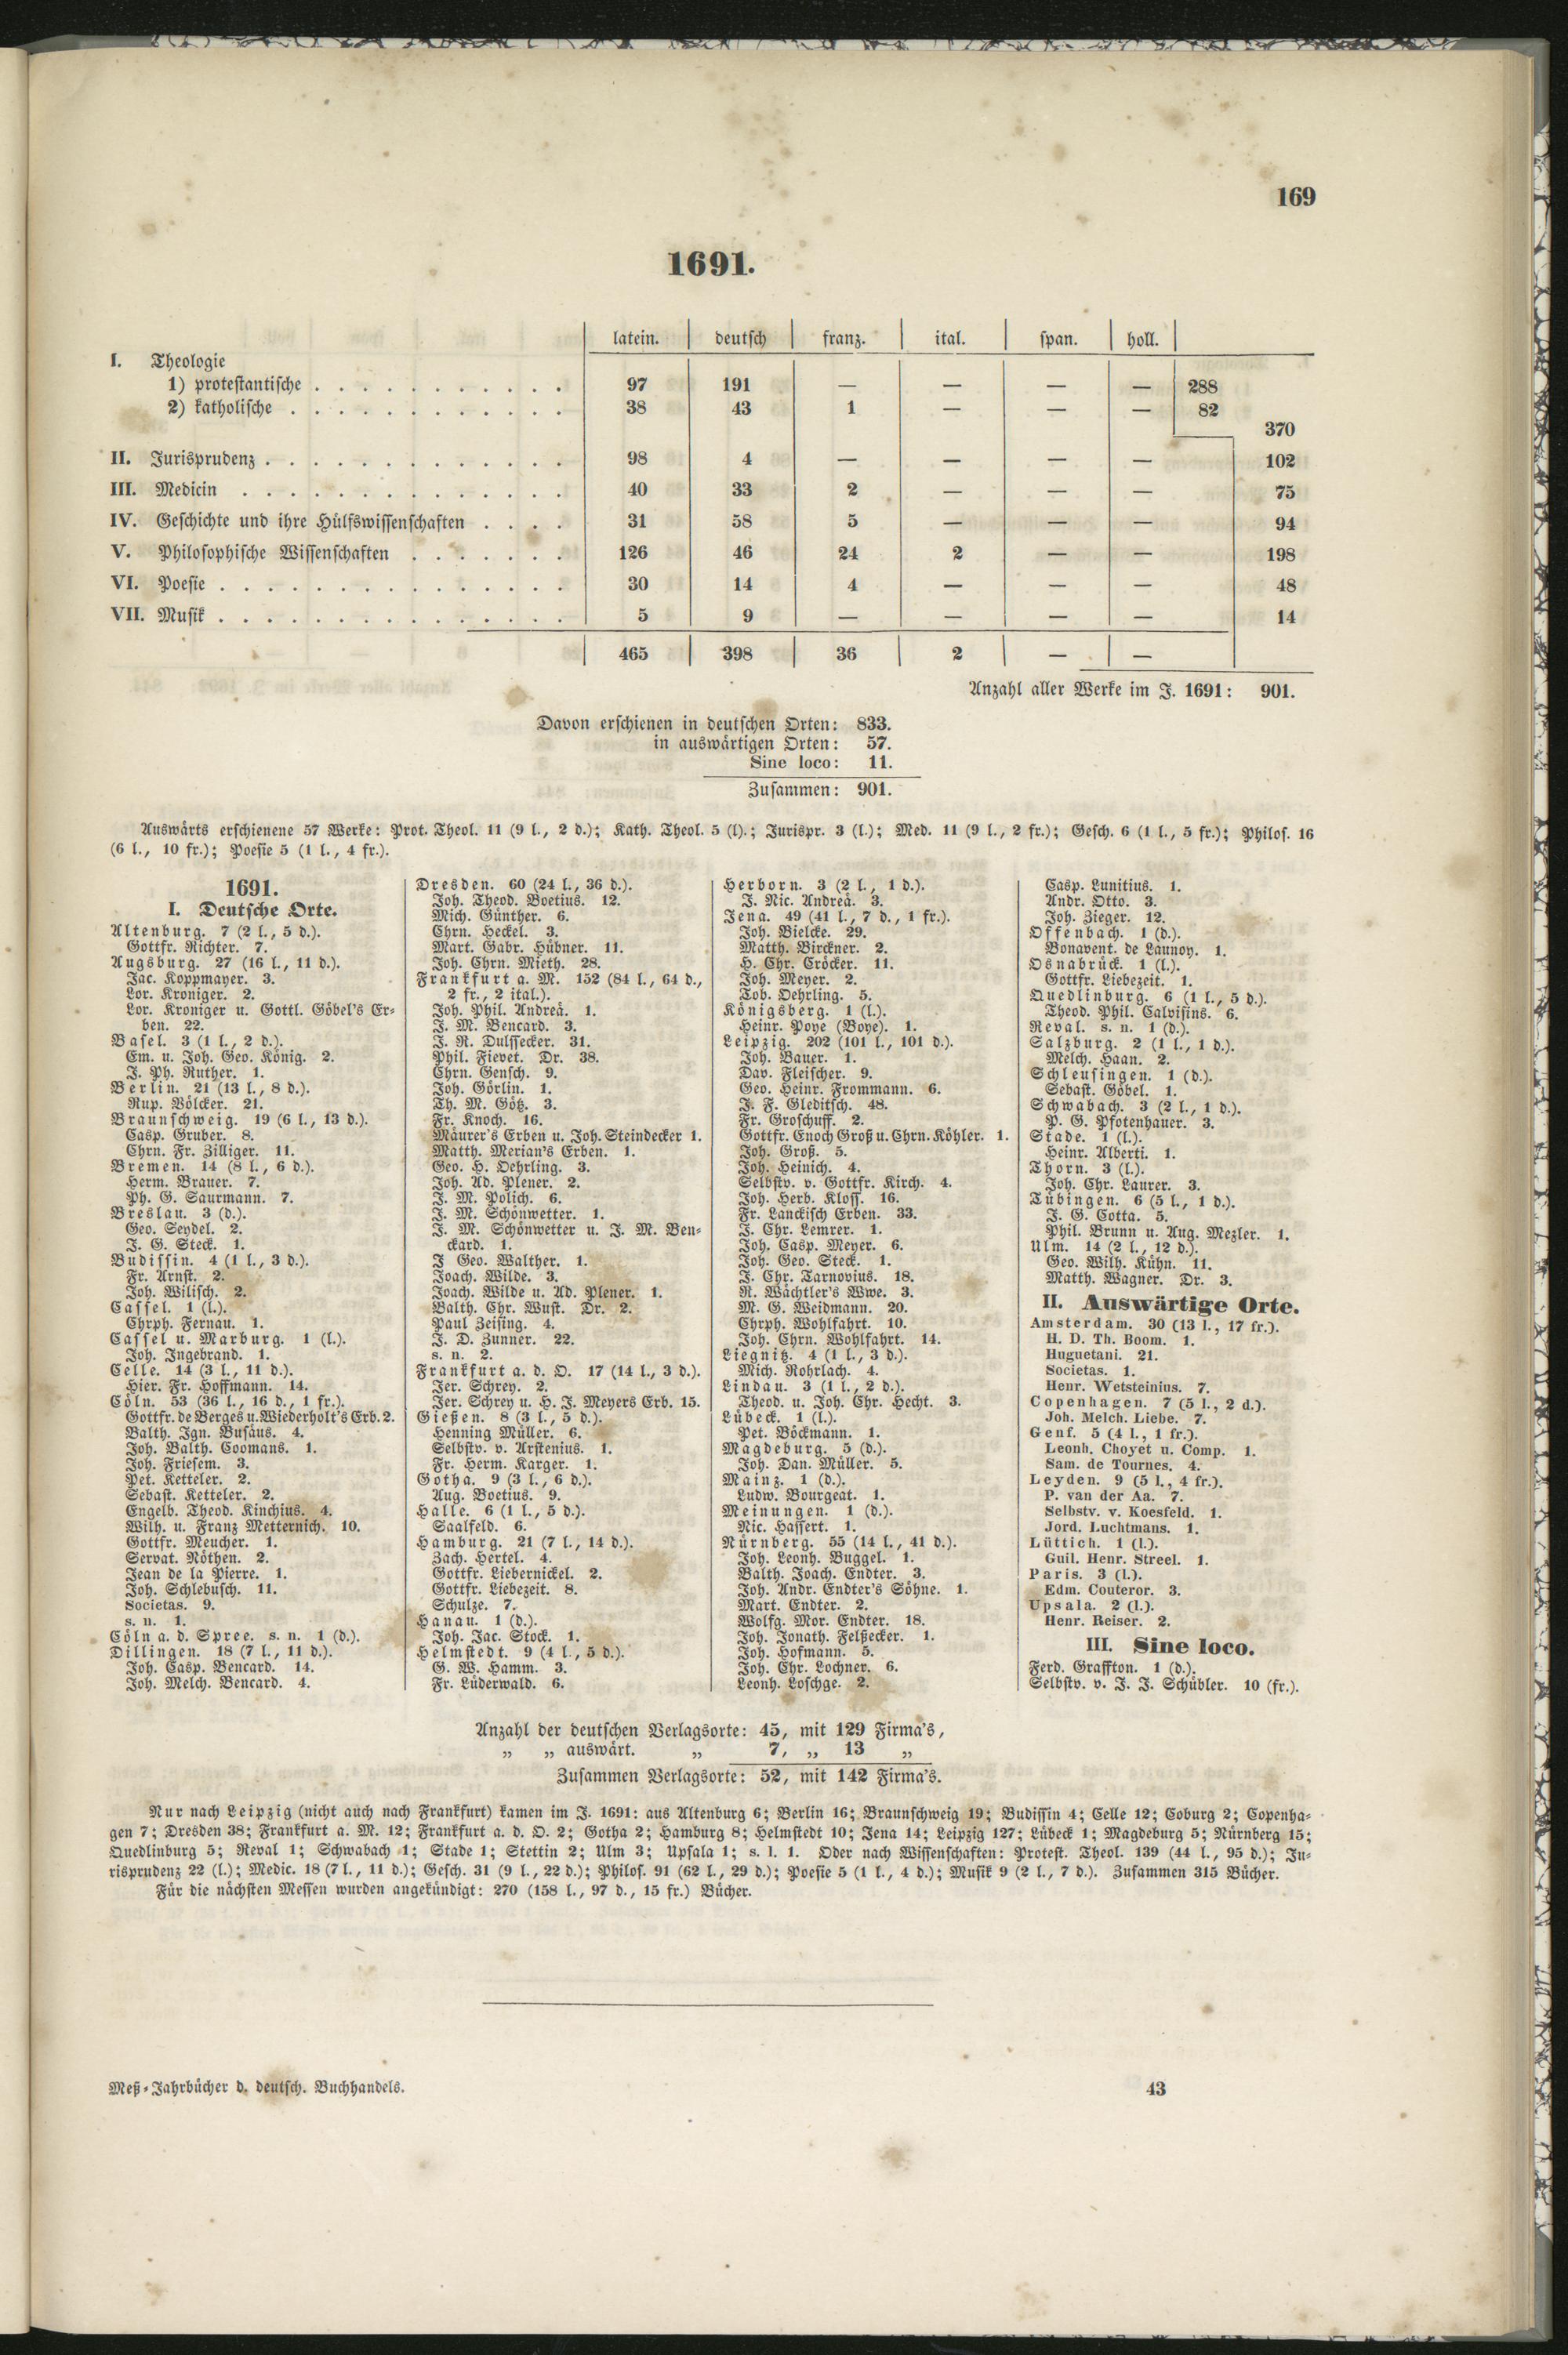 169
1691.
latein. deutsch franz. ital. span. holl.
I. Theologie
1) protestantische . . . . . . . . . . . 97 191 — — — — 288
2) katholische . . . . . . . . . . . . 38 43 1 — — — 82
370
II. Jurisprudenz . . . . . . . . . . . . . 98 4 — — — — 102
III. Medicin . . . . . . . . . . . . . . 40 33 2 — — — 75
IV. Geschichte und ihre Hülfswissenschaften . . . . 31 58 5 — — — 94
V. Philosophische Wissenschaften . . . . . . . 126 46 24 2 — — 198
VI. Poesie . . . . . . . . . . . . . . . 30 14 4 — — — 48
VII. Musik . . . . . . . . . . . . . . . 5 9 — — — — 14
465 398 36 2 — —
Anzahl aller Werke im J. 1691: 901.
Davon erschienen in deutschen Orten: 833.
in auswärtigen Orten: 57.
Sine loco: 11.
Zusammen: 901.
Auswärts erschienene 57 Werke: Prot. Theol. 11 (9 l., 2 d.); Kath. Theol. 5 (l).; Jurispr. 3 (l.); Med. 11 (9 l., 2 fr.); Gesch. 6 (1 l., 5 fr.); Philos. 16
(6 l., 10 fr.); Poesie 5 (1 l., 4 fr.).
1691.
I. Deutsche Orte.
Altenburg. 7 (2 l., 5 d.).
Gottfr. Richter. 7.
Augsburg. 27 (16 l., 11 d.).
Jac. Koppmayer. 3.
Lor. Kroniger. 2.
Lor. Kroniger u. Gottl. Göbel's Er-
ben. 22.
Basel. 3 (1 l., 2 d.).
Em. u. Joh. Geo. König. 2.
J. Ph. Ruther. 1.
Berlin. 21 (13 l., 8 d.).
Rup. Völcker. 21.
Braunschweig. 19 (6 l., 13 d.).
Casp. Gruber. 8.
Chrn. Fr. Zilliger. 11.
Bremen. 14 (8 l., 6 d.).
Herm. Brauer. 7.
Ph. G. Saurmann. 7.
Breslau. 3 (d.).
Geo. Seydel. 2.
J. G. Steck. 1.
Budissin. 4 (1 l., 3 d.).
Fr. Arnst. 2.
Joh. Wilisch. 2.
Cassel. 1 (l.).
Chrph. Fernau. 1.
Cassel u. Marburg. 1 (l.).
Joh. Ingebrand. 1.
Celle. 14 (3 l., 11 d.).
Hier. Fr. Hoffmann. 14.
Cöln. 53 (36 l., 16 d., 1 fr.).
Gottfr. de Berges u. Wiederholt's Erb. 2.
Balth. Ign. Busäus. 4.
Joh. Balth. Coomans. 1.
Joh. Friesem. 3.
Pet. Ketteler. 2.
Sebast. Ketteler. 2.
Engelb. Theod. Kinchius. 4.
Wilh. u. Franz Metternich. 10.
Gottfr. Meucher. 1.
Servat. Nöthen. 2.
Jean de la Pierre. 1.
Joh. Schlebusch. 11.
Societas. 9.
s. n. 1.
Cöln a. d. Spree. s. n. 1 (d.).
Dillingen. 18 (7 l., 11 d.).
Joh. Casp. Bencard. 14.
Joh. Melch. Bencard. 4.
Dresden. 60 (24 l., 36 d.).
Joh. Theod. Boetius. 12.
Mich. Günther. 6.
Chrn. Heckel. 3.
Mart. Gabr. Hübner. 11.
Joh. Chrn. Mieth. 28.
Frankfurt a. M. 152 (84 l., 64 d.,
2 fr., 2 ital.).
Joh. Phil. Andreä. 1.
J. M. Bencard. 3.
J. R. Dulssecker. 31.
Phil. Fievet. Dr. 38.
Chrn. Gensch. 9.
Joh. Görlin. 1.
Th. M. Götz. 3.
Fr. Knoch. 16.
Mäurer's Erben u. Joh. Steindecker 1.
Matth. Merian's Erben. 1.
Geo. H. Oehrling. 3.
Joh. Ad. Plener. 2.
J. M. Polich. 6.
J. M. Schönwetter. 1.
J. M. Schönwetter u. J. M. Ben-
ckard. 1.
J Geo. Walther. 1.
Joach. Wilde. 3.
Joach. Wilde u. Ad. Plener. 1.
Balth. Chr. Wust. Dr. 2.
Paul Zeising. 4.
J. D. Zunner. 22.
s. n. 2.
Frankfurt a. d. O. 17 (14 l., 3 d.).
Jer. Schrey. 2.
Jer. Schrey u. H. J. Meyers Erb. 15.
Gießen. 8 (3 l., 5 d.).
Henning Müller. 6.
Selbstv. v. Arstenius. 1.
Fr. Herm. Karger. 1.
Gotha. 9 (3 l., 6 d.).
Aug. Boetius. 9.
Halle. 6 (1 l., 5 d.).
Saalfeld. 6.
Hamburg. 21 (7 l., 14 d.).
Zach. Hertel. 4.
Gottfr. Liebernickel. 2.
Gottfr. Liebezeit. 8.
Schulze. 7.
Hanau. 1 (d.).
Joh. Jac. Stock. 1.
Helmstedt. 9 (4 l., 5 d.).
G. W. Hamm. 3.
Fr. Lüderwald. 6.
Herborn. 3 (2 l., 1 d.).
J. Nic. Andreä. 3.
Jena. 49 (41 l., 7 d., 1 fr.).
Joh. Bielcke. 29.
Matth. Birckner. 2.
H. Chr. Cröcker. 11.
Joh. Meyer. 2.
Tob. Oehrling. 5.
Königsberg. 1 (l.).
Heinr. Poye (Boye). 1.
Leipzig. 202 (101 l., 101 d.).
Joh. Bauer. 1.
Dav. Fleischer. 9.
Geo. Heinr. Frommann. 6.
J. F. Gleditsch. 48.
Fr. Groschuff. 2.
Gottfr. Enoch Groß u. Chrn. Köhler. 1.
Joh. Groß. 5.
Joh. Heinich. 4.
Selbstv. v. Gottfr. Kirch. 4.
Joh. Herb. Kloss. 16.
Fr. Lanckisch Erben. 33.
J. Chr. Lemrer. 1.
Joh. Casp. Meyer. 6.
Joh. Geo. Steck. 1.
J. Chr. Tarnovius. 18.
R. Wächtler's Wwe. 3.
M. G. Weidmann. 20.
Chrph. Wohlfahrt. 10.
Joh. Chrn. Wohlfahrt. 14.
Liegnitz. 4 (1 l., 3 d.).
Mich. Rohrlach. 4.
Lindau. 3 (1 l., 2 d.).
Theod. u. Joh. Chr. Hecht. 3.
Lübeck. 1 (l.).
Pet. Böckmann. 1.
Magdeburg. 5 (d.).
Joh. Dan. Müller. 5.
Mainz. 1 (d.).
Ludw. Bourgeat. 1.
Meinungen. 1 (d.).
Nic. Hassert. 1.
Nürnberg. 55 (14 l., 41 d.).
Joh. Leonh. Buggel. 1.
Balth. Joach. Endter. 3.
Joh. Andr. Endter's Söhne. 1.
Mart. Endter. 2.
Wolfg. Mor. Endter. 18.
Joh. Jonath. Felßecker. 1.
Joh. Hofmann. 5.
Joh. Chr. Lochner. 6.
Leonh. Loschge. 2.
Casp. Lunitius. 1.
Andr. Otto. 3.
Joh. Zieger. 12.
Offenbach. 1 (d.).
Bonavent. de Launoy. 1.
Osnabrück. 1 (l.).
Gottfr. Liebezeit. 1.
Quedlinburg. 6 (1 l., 5 d.).
Theod. Phil. Calvisius. 6.
Reval. s. n. 1 (d.).
Salzburg. 2 (1 l., 1 d.).
Melch. Haan. 2.
Schleusingen. 1 (d.).
Sebast. Göbel. 1.
Schwabach. 3 (2 l., 1 d.).
P. G. Pfotenhauer. 3.
Stade. 1 (l.).
Heinr. Alberti. 1.
Thorn. 3 (l.).
Joh. Chr. Laurer. 3.
Tübingen. 6 (5 l., 1 d.).
J. G. Cotta. 5.
Phil. Brunn u. Aug. Mezler. 1.
Ulm. 14 (2 l., 12 d.).
Geo. Wilh. Kühn. 11.
Matth. Wagner. Dr. 3.
II. Auswärtige Orte.
Amsterdam. 30 (13 l., 17 fr.).
H. D. Th. Boom. 1.
Huguetani. 21.
Societas. 1.
Henr. Wetsteinius. 7.
Copenhagen. 7 (5 l., 2 d.).
Joh. Melch. Liebe. 7.
Genf. 5 (4 l., 1 fr.).
Leonh. Choyet u. Comp. 1.
Sam. de Tournes. 4.
Leyden. 9 (5 l., 4 fr.).
P. van der Aa. 7.
Selbstv. v. Koesfeld. 1.
Jord. Luchtmans. 1.
Lüttich. 1 (l.).
Guil. Henr. Streel. 1.
Paris. 3 (l.).
Edm. Couteror. 3.
Upsala. 2 (l.).
Henr. Reiser. 2.
III. Sine loco.
Ferd. Graffton. 1 (d.).
Selbstv. v. J. J. Schübler. 10 (fr.).
Anzahl der deutschen Verlagsorte: 45, mit 129 Firma's,
„ „ auswärt. „ 7, „ 13 „
Zusammen Verlagsorte: 52, mit 142 Firma's.
Nur nach Leipzig (nicht auch nach Frankfurt) kamen im J. 1691: aus Altenburg 6; Berlin 16; Braunschweig 19; Budissin 4; Celle 12; Coburg 2; Copenha-
gen 7; Dresden 38; Frankfurt a. M. 12; Frankfurt a. d. O. 2; Gotha 2; Hamburg 8; Helmstedt 10; Jena 14; Leipzig 127; Lübeck 1; Magdeburg 5; Nürnberg 15;
Quedlinburg 5; Reval 1; Schwabach 1; Stade 1; Stettin 2; Ulm 3; Upsala 1; s. l. 1. Oder nach Wissenschaften: Protest. Theol. 139 (44 l., 95 d.); Ju-
risprudenz 22 (l.); Medic. 18 (7 l., 11 d.); Gesch. 31 (9 l., 22 d.); Philos. 91 (62 l., 29 d.); Poesie 5 (1 l., 4 d.); Musik 9 (2 l., 7 d.). Zusammen 315 Bücher.
Für die nächsten Messen wurden angekündigt: 270 (158 l., 97 d., 15 fr.) Bücher.
Meß-Jahrbücher d. deutsch. Buchhandels.
43